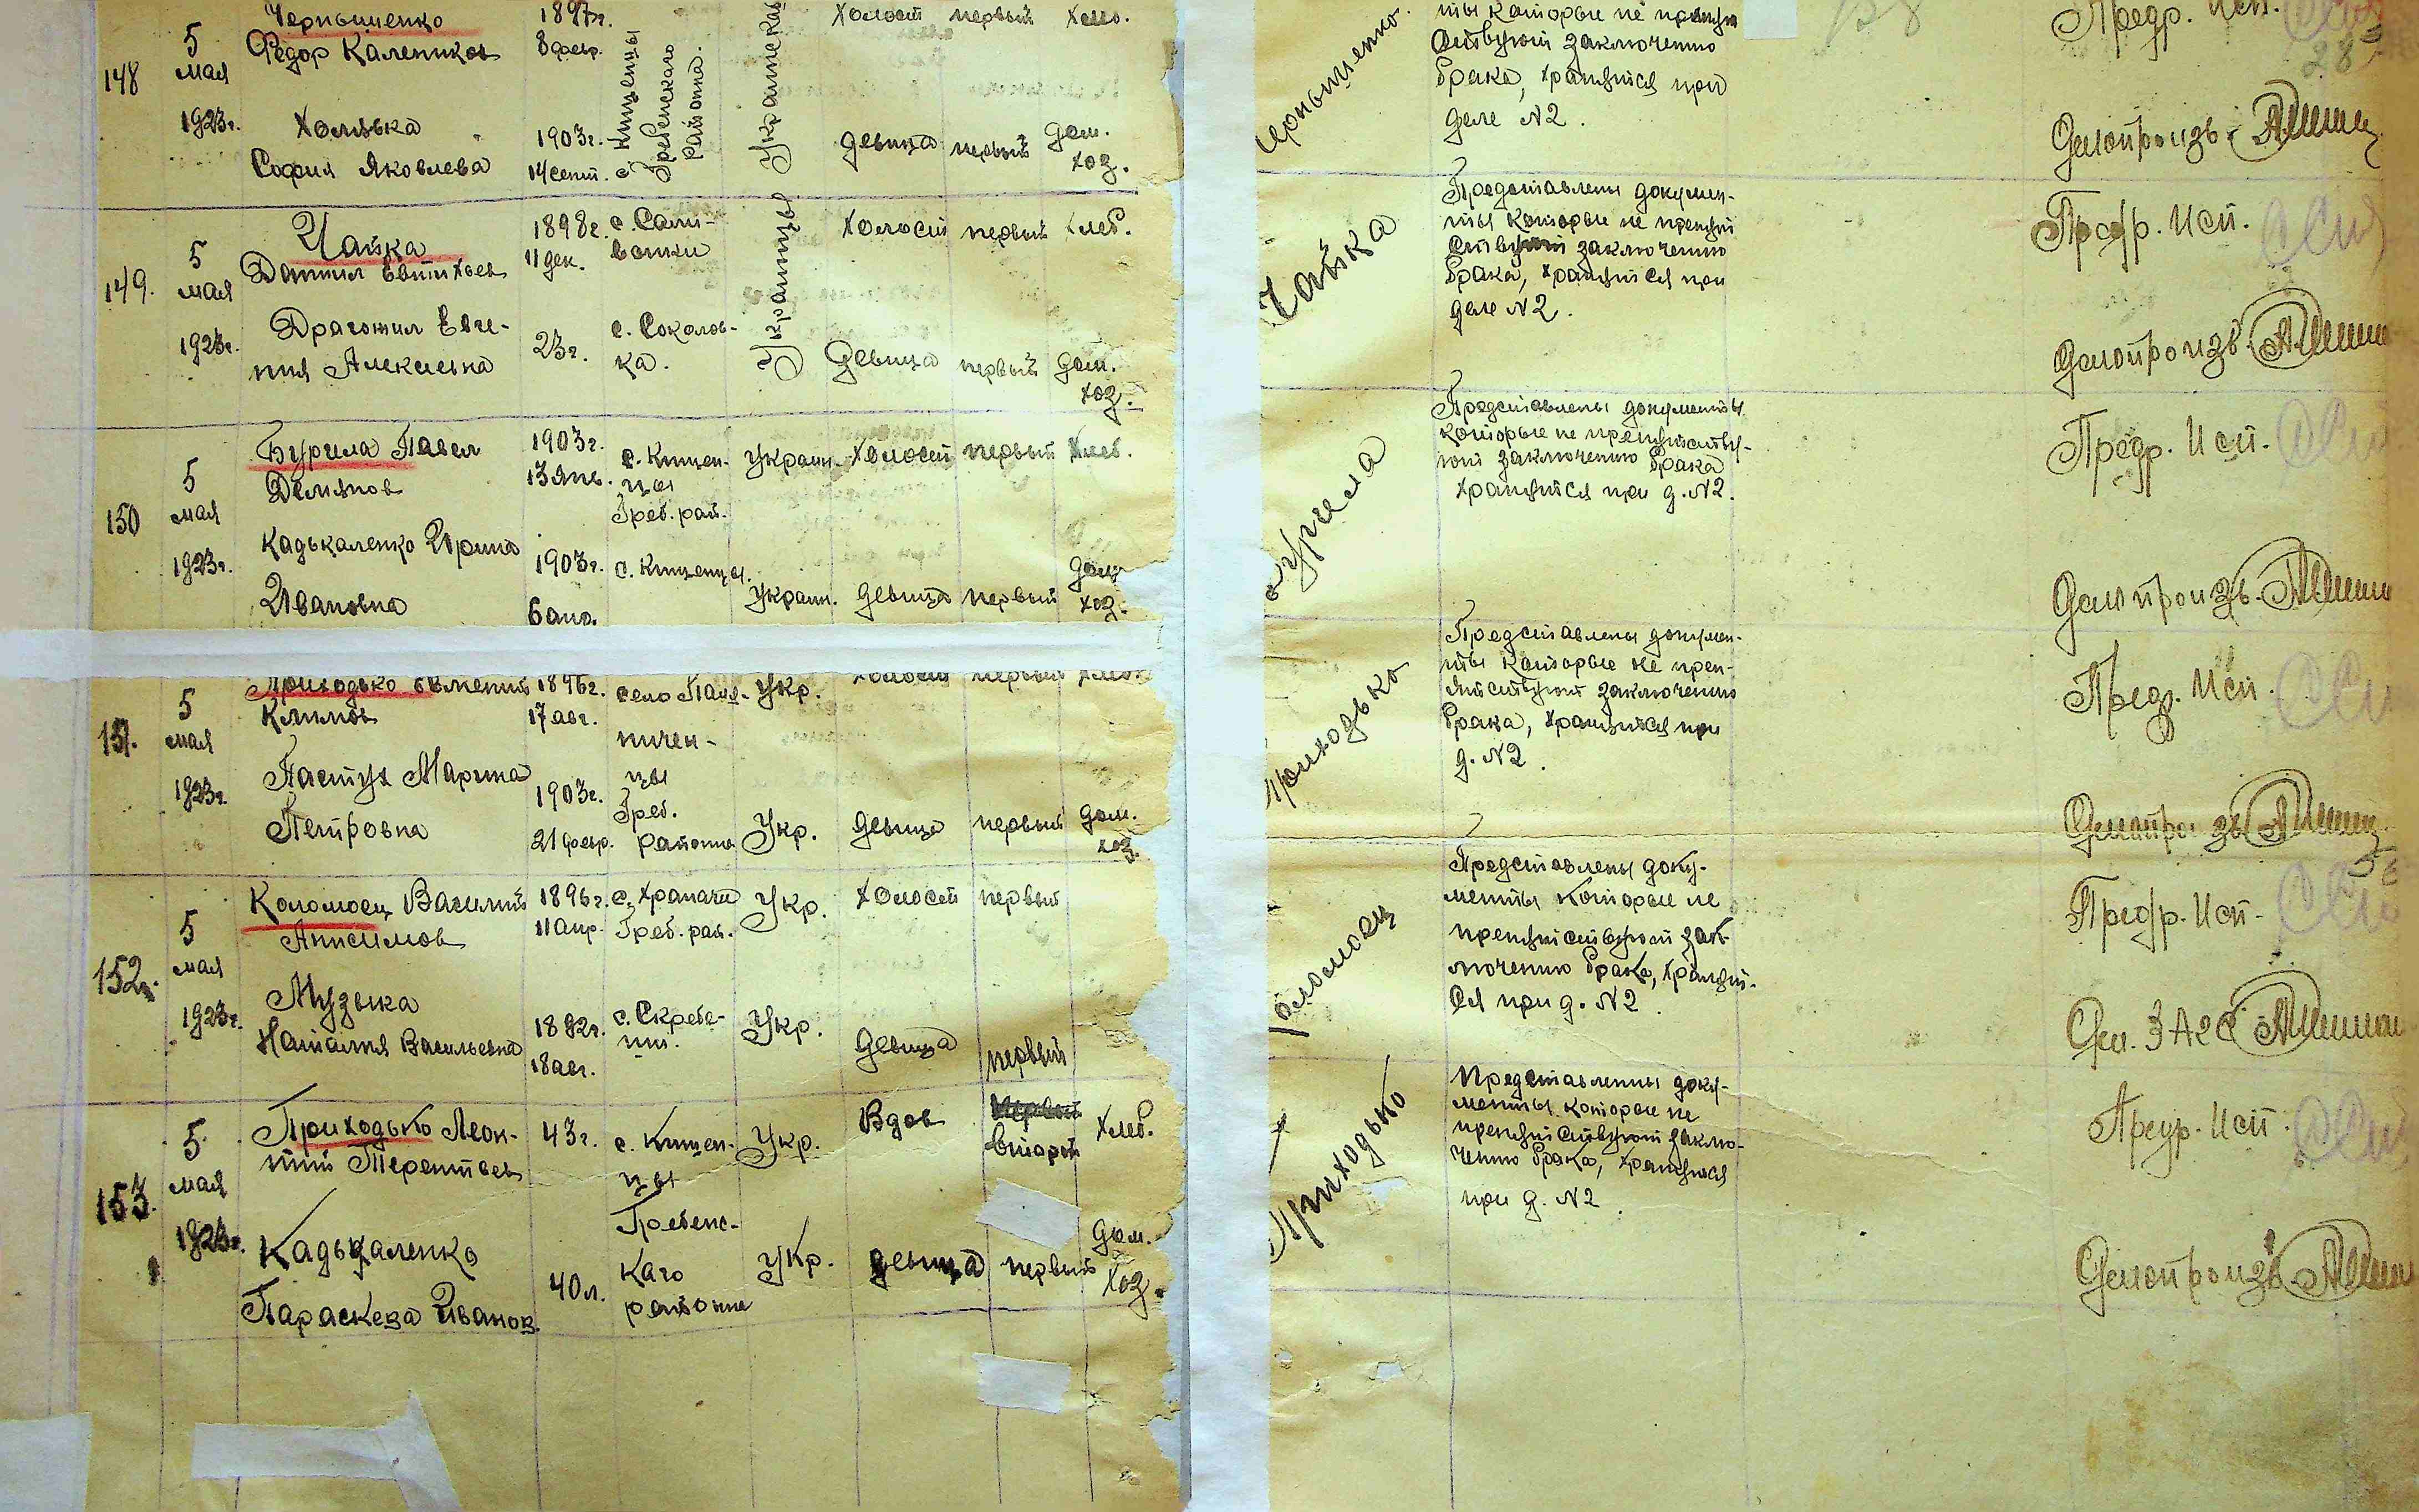 148
5
мая
1923г.
Чернышенко
Федор Калеников
1897г.
8 февр.
с. Кищенцы
Гребенскаго
района.
Украинская
холост первый хлеб.
Холявка
София Яковлева
1903г.
14 сент.
девица первый дом.
хоз.
Чернышенко.
ты которые не препят
ствуют заключению
брака, хранятся при
деле N2.
Предр. Исп.
28
Делопроизв.
149.
5
мая
1923г.
Чайка
Даниил Евтихьев
1898г.
11 дек.
с. Сали-
вонки
Украинцы
холост первый хлеб.
Драгомил Евге-
ния Алексеевна
23г.
с. Соколов-
ка.
девица первый дом.
хоз.
Чайка
Представлены докумен-
ты которые не препят
ствуют заключению
брака, хранятся при
деле N2.
Предр. Исп.
Делопроизв.
150
5
мая
1923г.
Бурила Павел
Демянов
1903г.
13 Янв.
с. Кищен-
цы
Греб. рай.
Украин. холост первый хлеб.
Кадькаленко Ирина
Ивановна
1903г.
6 апр.
с. Кищенцы.
Украин. девица первый дом
хоз.
Представлены документы
которые не препятству-
ют заключению брака
хранятся при д. N2.
Предр. Исп.
Делопроизв.
151.
5
мая
1923г.
Приходько Евмений
Климов
1896г.
17 авг.
село Пани-
ничен-
цы
Греб.
района
Укр.
холост первый хлеб.
Пастух Марина
Петровна
1903г.
21 февр.
Укр. девица первый дом.
хоз.
Приходько
Представлены докумен-
ты которые не преп-
ятствуют заключению
брака, хранятся при
д. N2.
Предр. Исп.
Делопроизв
152.
5
мая
1923г.
Коломоец Василий
Анисимов
1896г.
11 апр.
с. Храпачи
Греб. рай.
Укр.
холост первый
Музыка
Наталия Васильевна
1892г.
18 авг.
с. Скребе-
ши.
Укр.
девица первый
Коломоец
Представлены доку-
менты которые не
препятствуют зак-
лючению брака, хранят-
ся при д. N2.
Предр. Исп.
Дел. ЗАГС
153.
5
мая
1923г.
Приходько Леон-
тий Терентьев
43г.
с. Кищен-
цы
Гребенс-
каго
района
Укр.
Вдов
первый
второй
Хлеб.
Кадькаленко
Параскева Иванов.
40 л.
Укр. девица первый
дом.
хоз.
Приходько
Представлены доку-
менты которые не
препятствуют заклю-
чению брака, хранятся
при д. N2.
Предр. Исп.
Делопроизв.